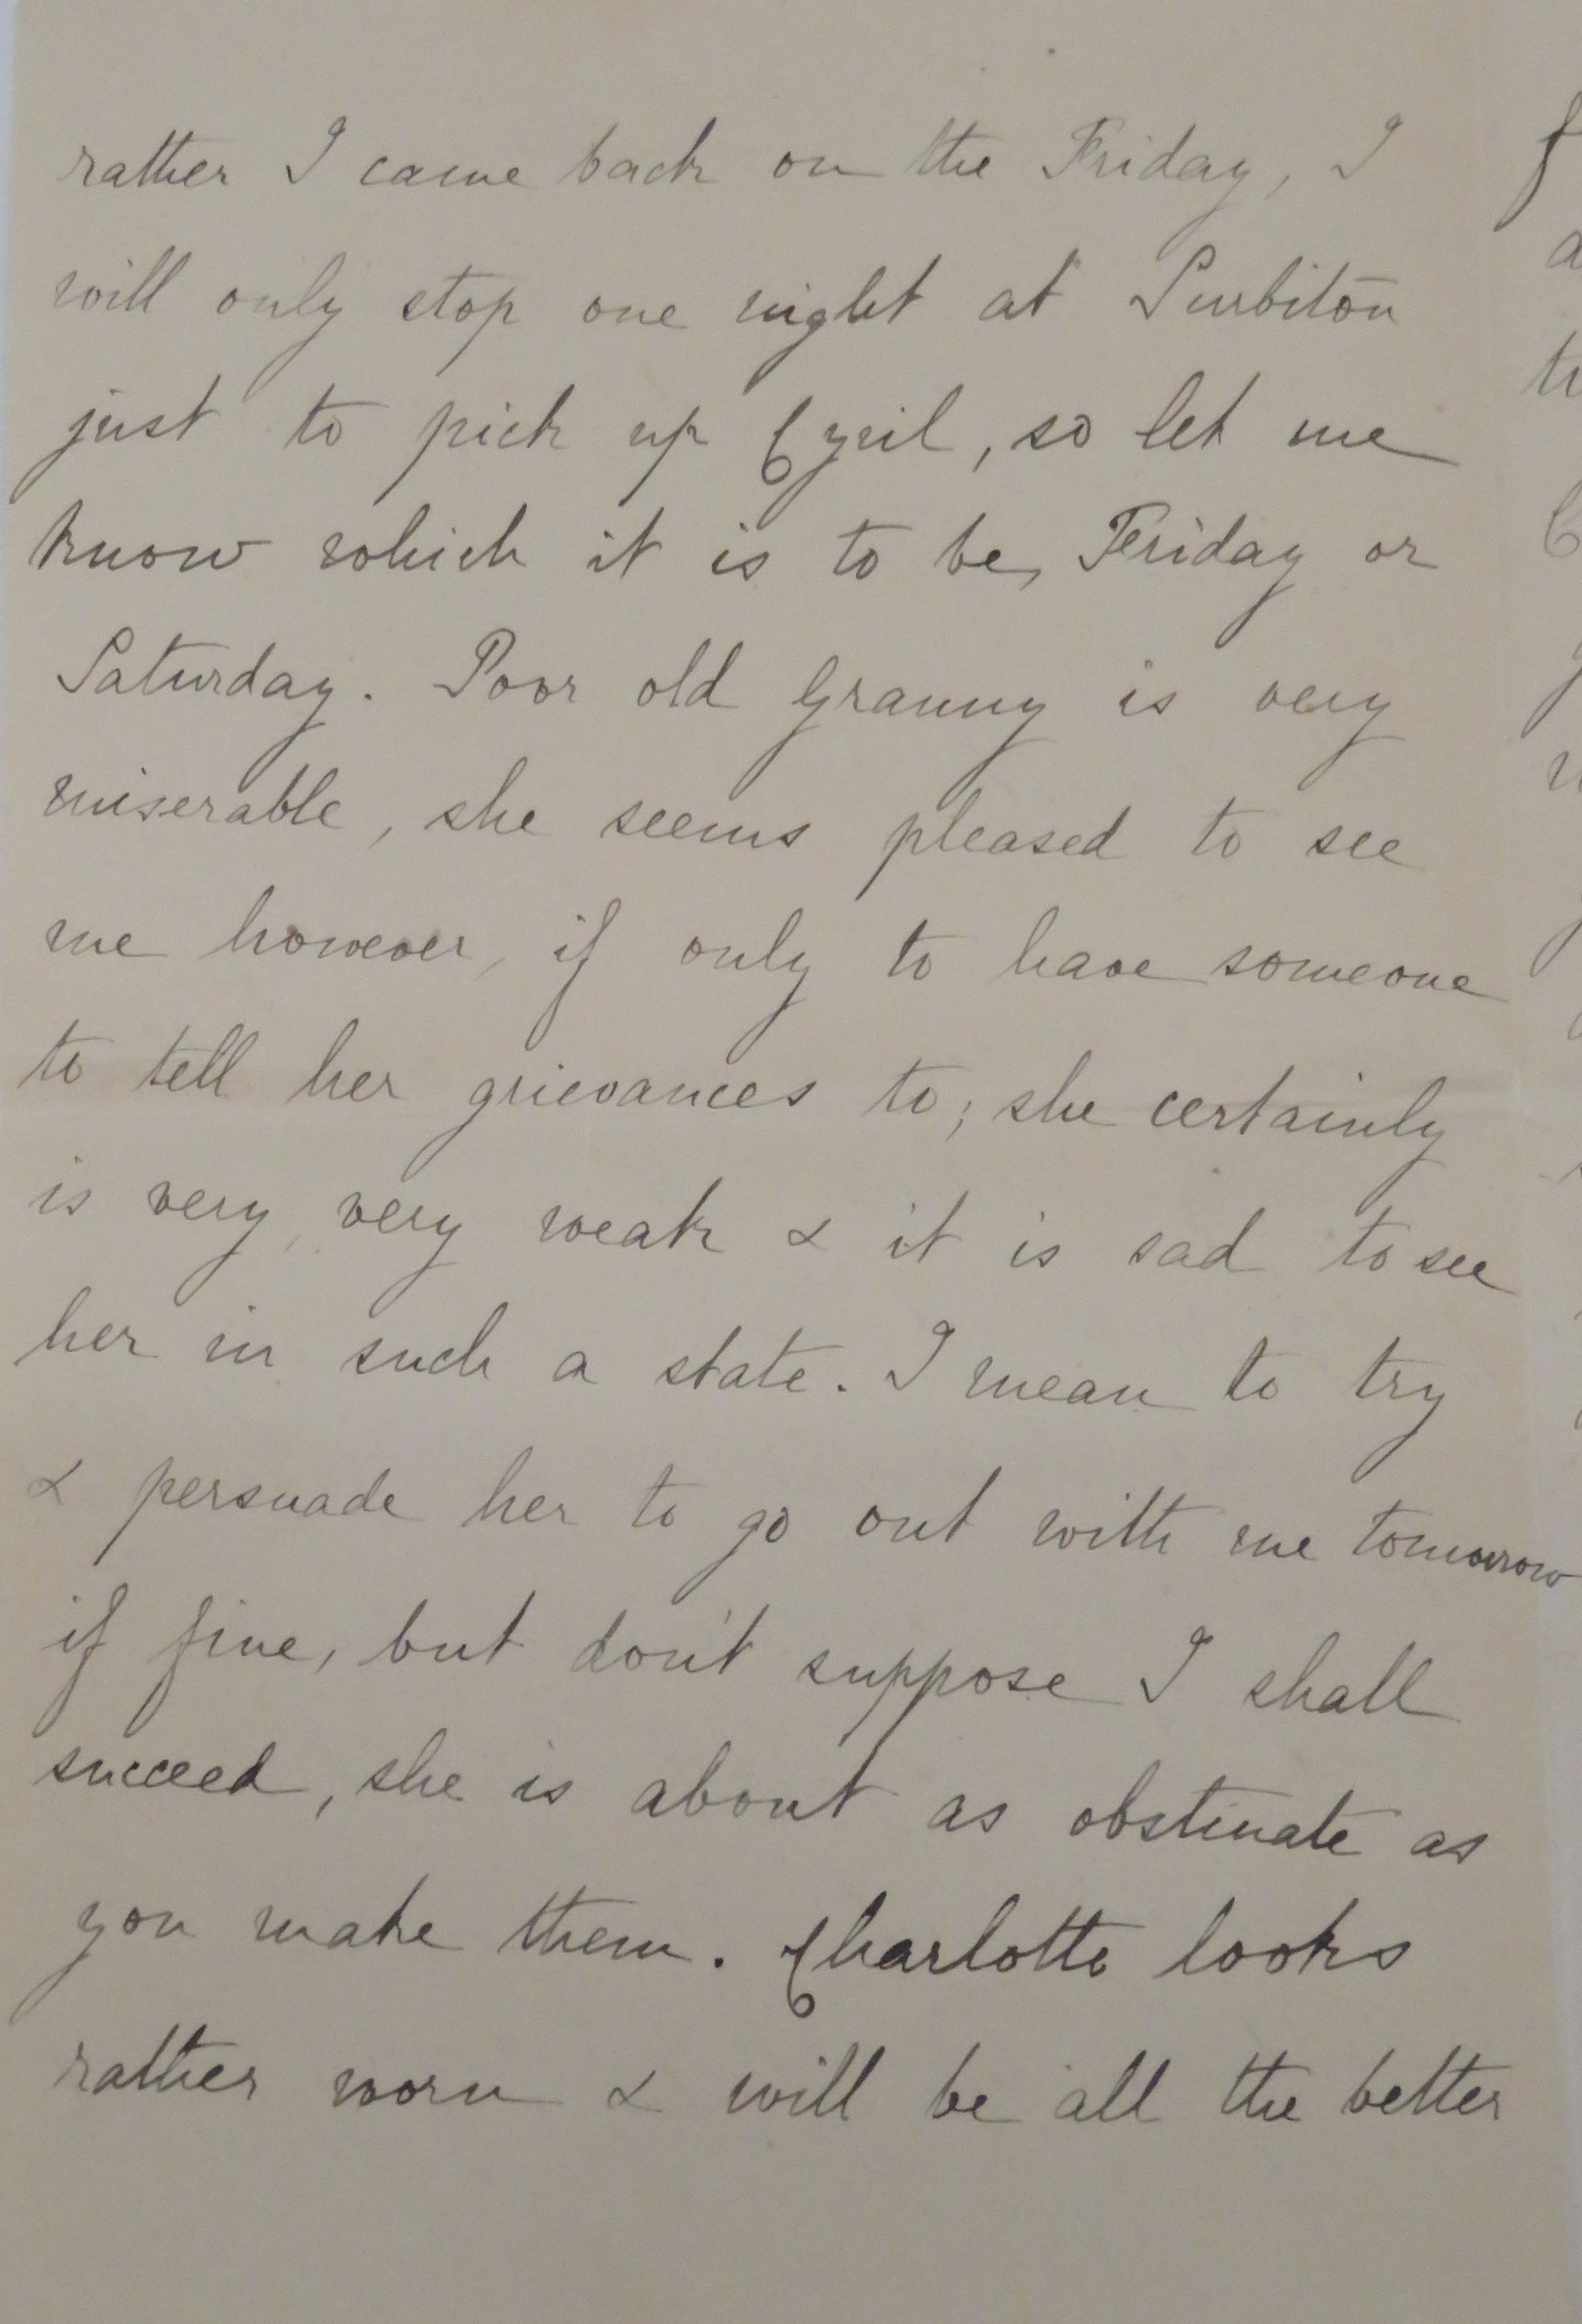 rather I came back on the Friday, I
will only stop one night at Surbiton
just to pick up Cyril, so let me
know which it is to be, Friday or
Saturday. Poor old Granny is very
miserable, she seems pleased to see
me however, if only to have someone
to tell her grievances to; she certainly
is very, very weak & it is sad to see
her in such a state. I mean to try
& persuade her to go out with me tomorrow
if fine, but don't suppose I shall
succeed, she is about as obstinate as
you make them. Charlotte looks
rather worn & will be all the better